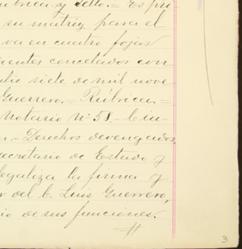 rúbrica y sello.= Es pri
su matriz para el
va en cuatro fojas
cancelados con
siete de mil nove
Guerrero.- Rúbrica.=
Notario Nº 58.
Derechos devengados,
Secretario de Estado y
legaliza la firma y
del C. Luis Guerrero,
de sus funciones.
3